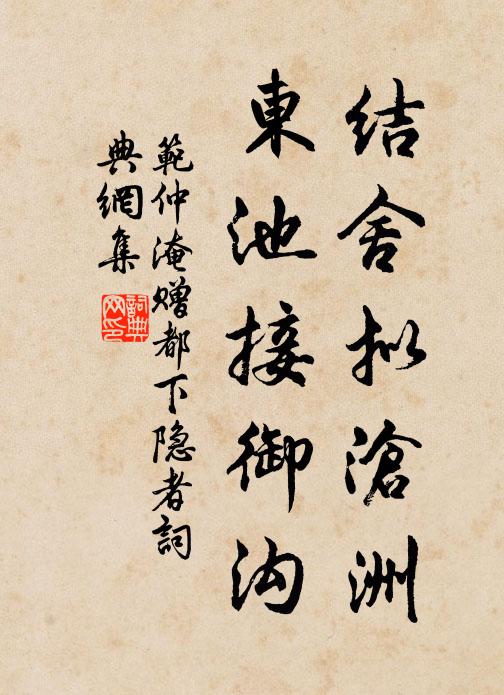 结舍拟滄洲
東池接御沟
範仲淹赠都下隐者詞
典網集
詞典网印